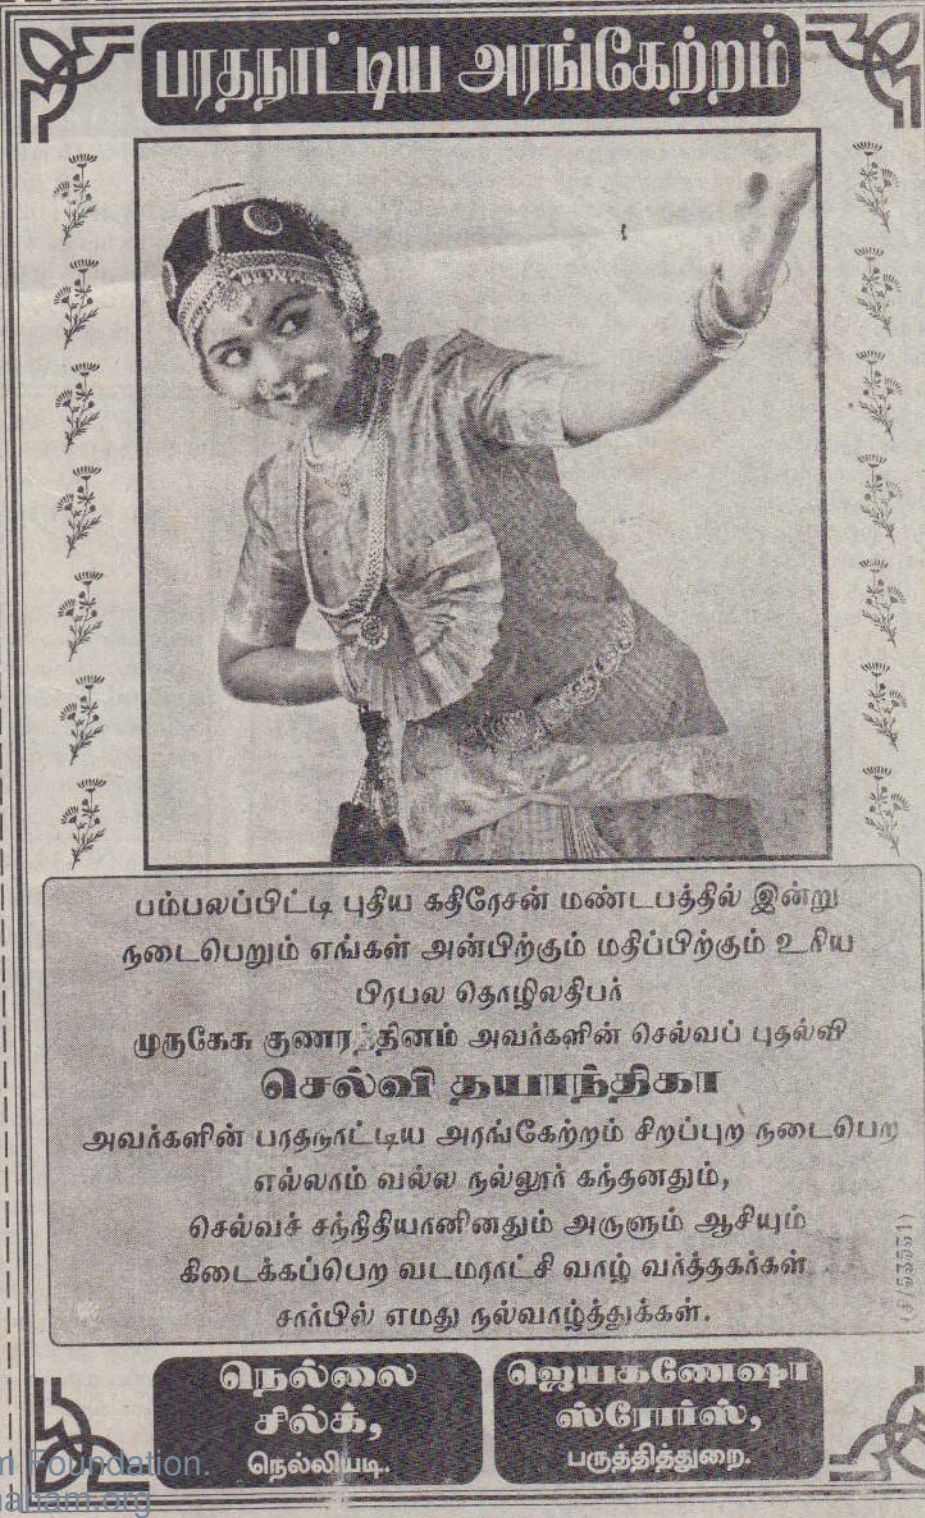 பரதநாட்டிய அரங்கேற்றம்
பம்பலப்பிட்டி புதிய கதிரேசன் மண்டபத்தில் இன்று
நடைபெறும் எங்கள் அன்பிற்கும் மதிப்பிற்கும் உரிய
பிரபல தொழிலதிபர்
முருகேசு குணரத்தினம் அவர்களின் செல்வப் புதல்வி
செல்வி தயாந்திகா
அவர்களின் பரதநாட்டிய அரங்கேற்றம் சிறப்புற நடைபெற
எல்லாம் வல்ல நல்லூர் கந்தனதும்,
செல்வச் சந்நிதியானினதும் அருளும் ஆசியும்
கிடைக்கப்பெற வடமராட்சி வாழ் வர்த்தகர்கள்
சார்பில் எமது நல்வாழ்த்துக்கள்.
நெல்லை
சில்க்,
நெல்லியடி.
ஜெயகணேஷா
ஸ்ரோர்ஸ்,
பருத்தித்துறை.
Foundation.
aham.org